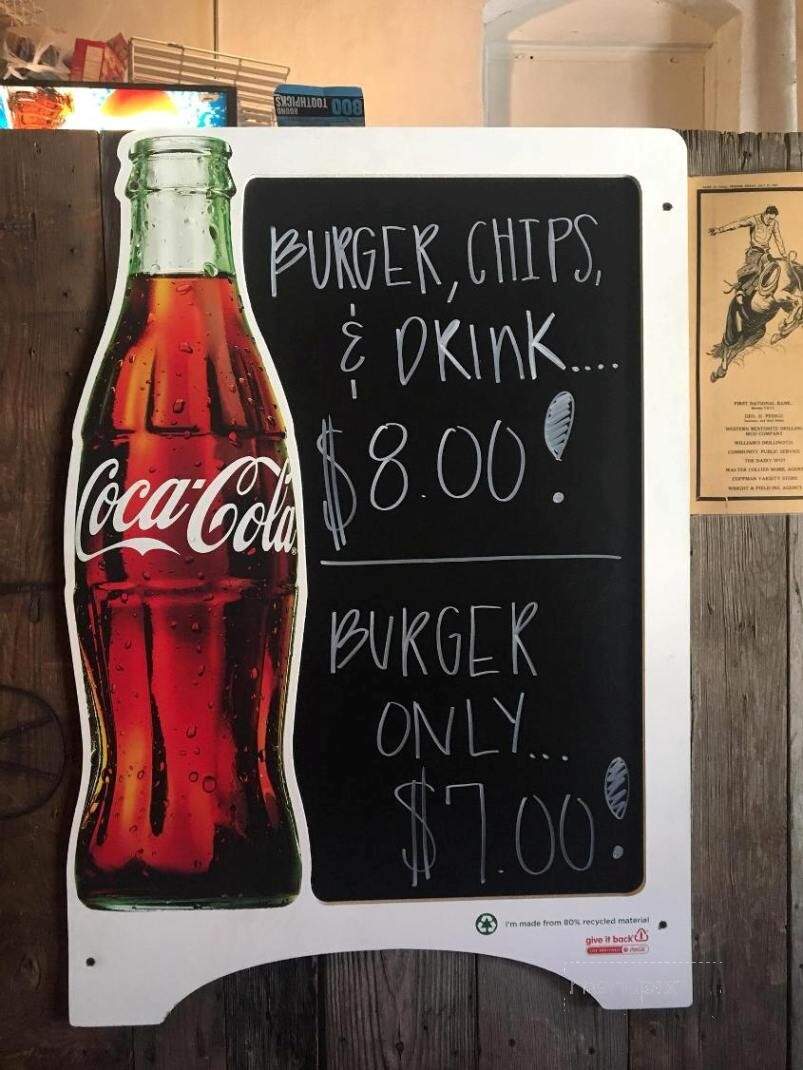 800
ROUND
TOOTHPICKS
BURGER, CHIPS,
& DRINK....
$8.00!
BURGER
ONLY...
$7.00!
Coca-Cola
I'm made from 80% recycled material
give it back
FIRST NATIONAL BANK
GEO. D. PIERCE
WESTERN BENTONITE DRILLING
MUD COMPANY
WILLIAMS DRILLING CO.
COMMUNITY PUBLIC SERVICE
THE DAIRY SPOT
COFFMAN VARIETY STORE
menupix